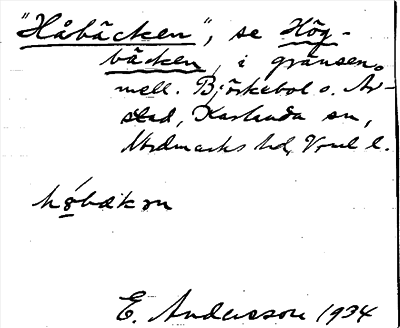 "Håbäcken", se Hög-
bäcken, i gränsen
mell. Björkebol o. År-
stad, Karlanda sn,
Nordmarks hd, Vrml l.
hǫ́bäkən
E. Andersson 1934